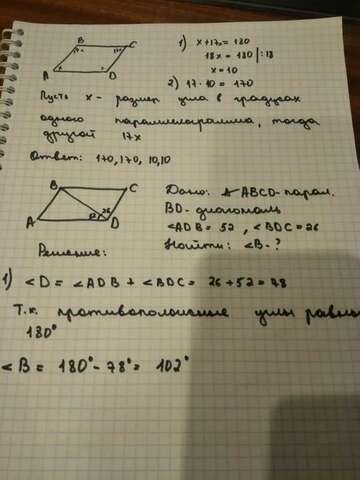 B C
A D
x 17x
1) x+17x = 180
18x = 180 | :18
x = 10
2) 17 · 10 = 170
Пусть x - размер угла в градусах
одного параллелограмма, тогда
другой 17x
Ответ: 170, 170, 10, 10
B C
A D
52 26
Дано: ABCD - парал.
BD - диагональ
∠ADB = 52, ∠BDC = 26
Найти: ∠B - ?
Решение:
1) ∠D = ∠ADB + ∠BDC = 26 + 52 = 78
Т.к. противоположные углы равны
180°
∠B = 180° - 78° = 102°